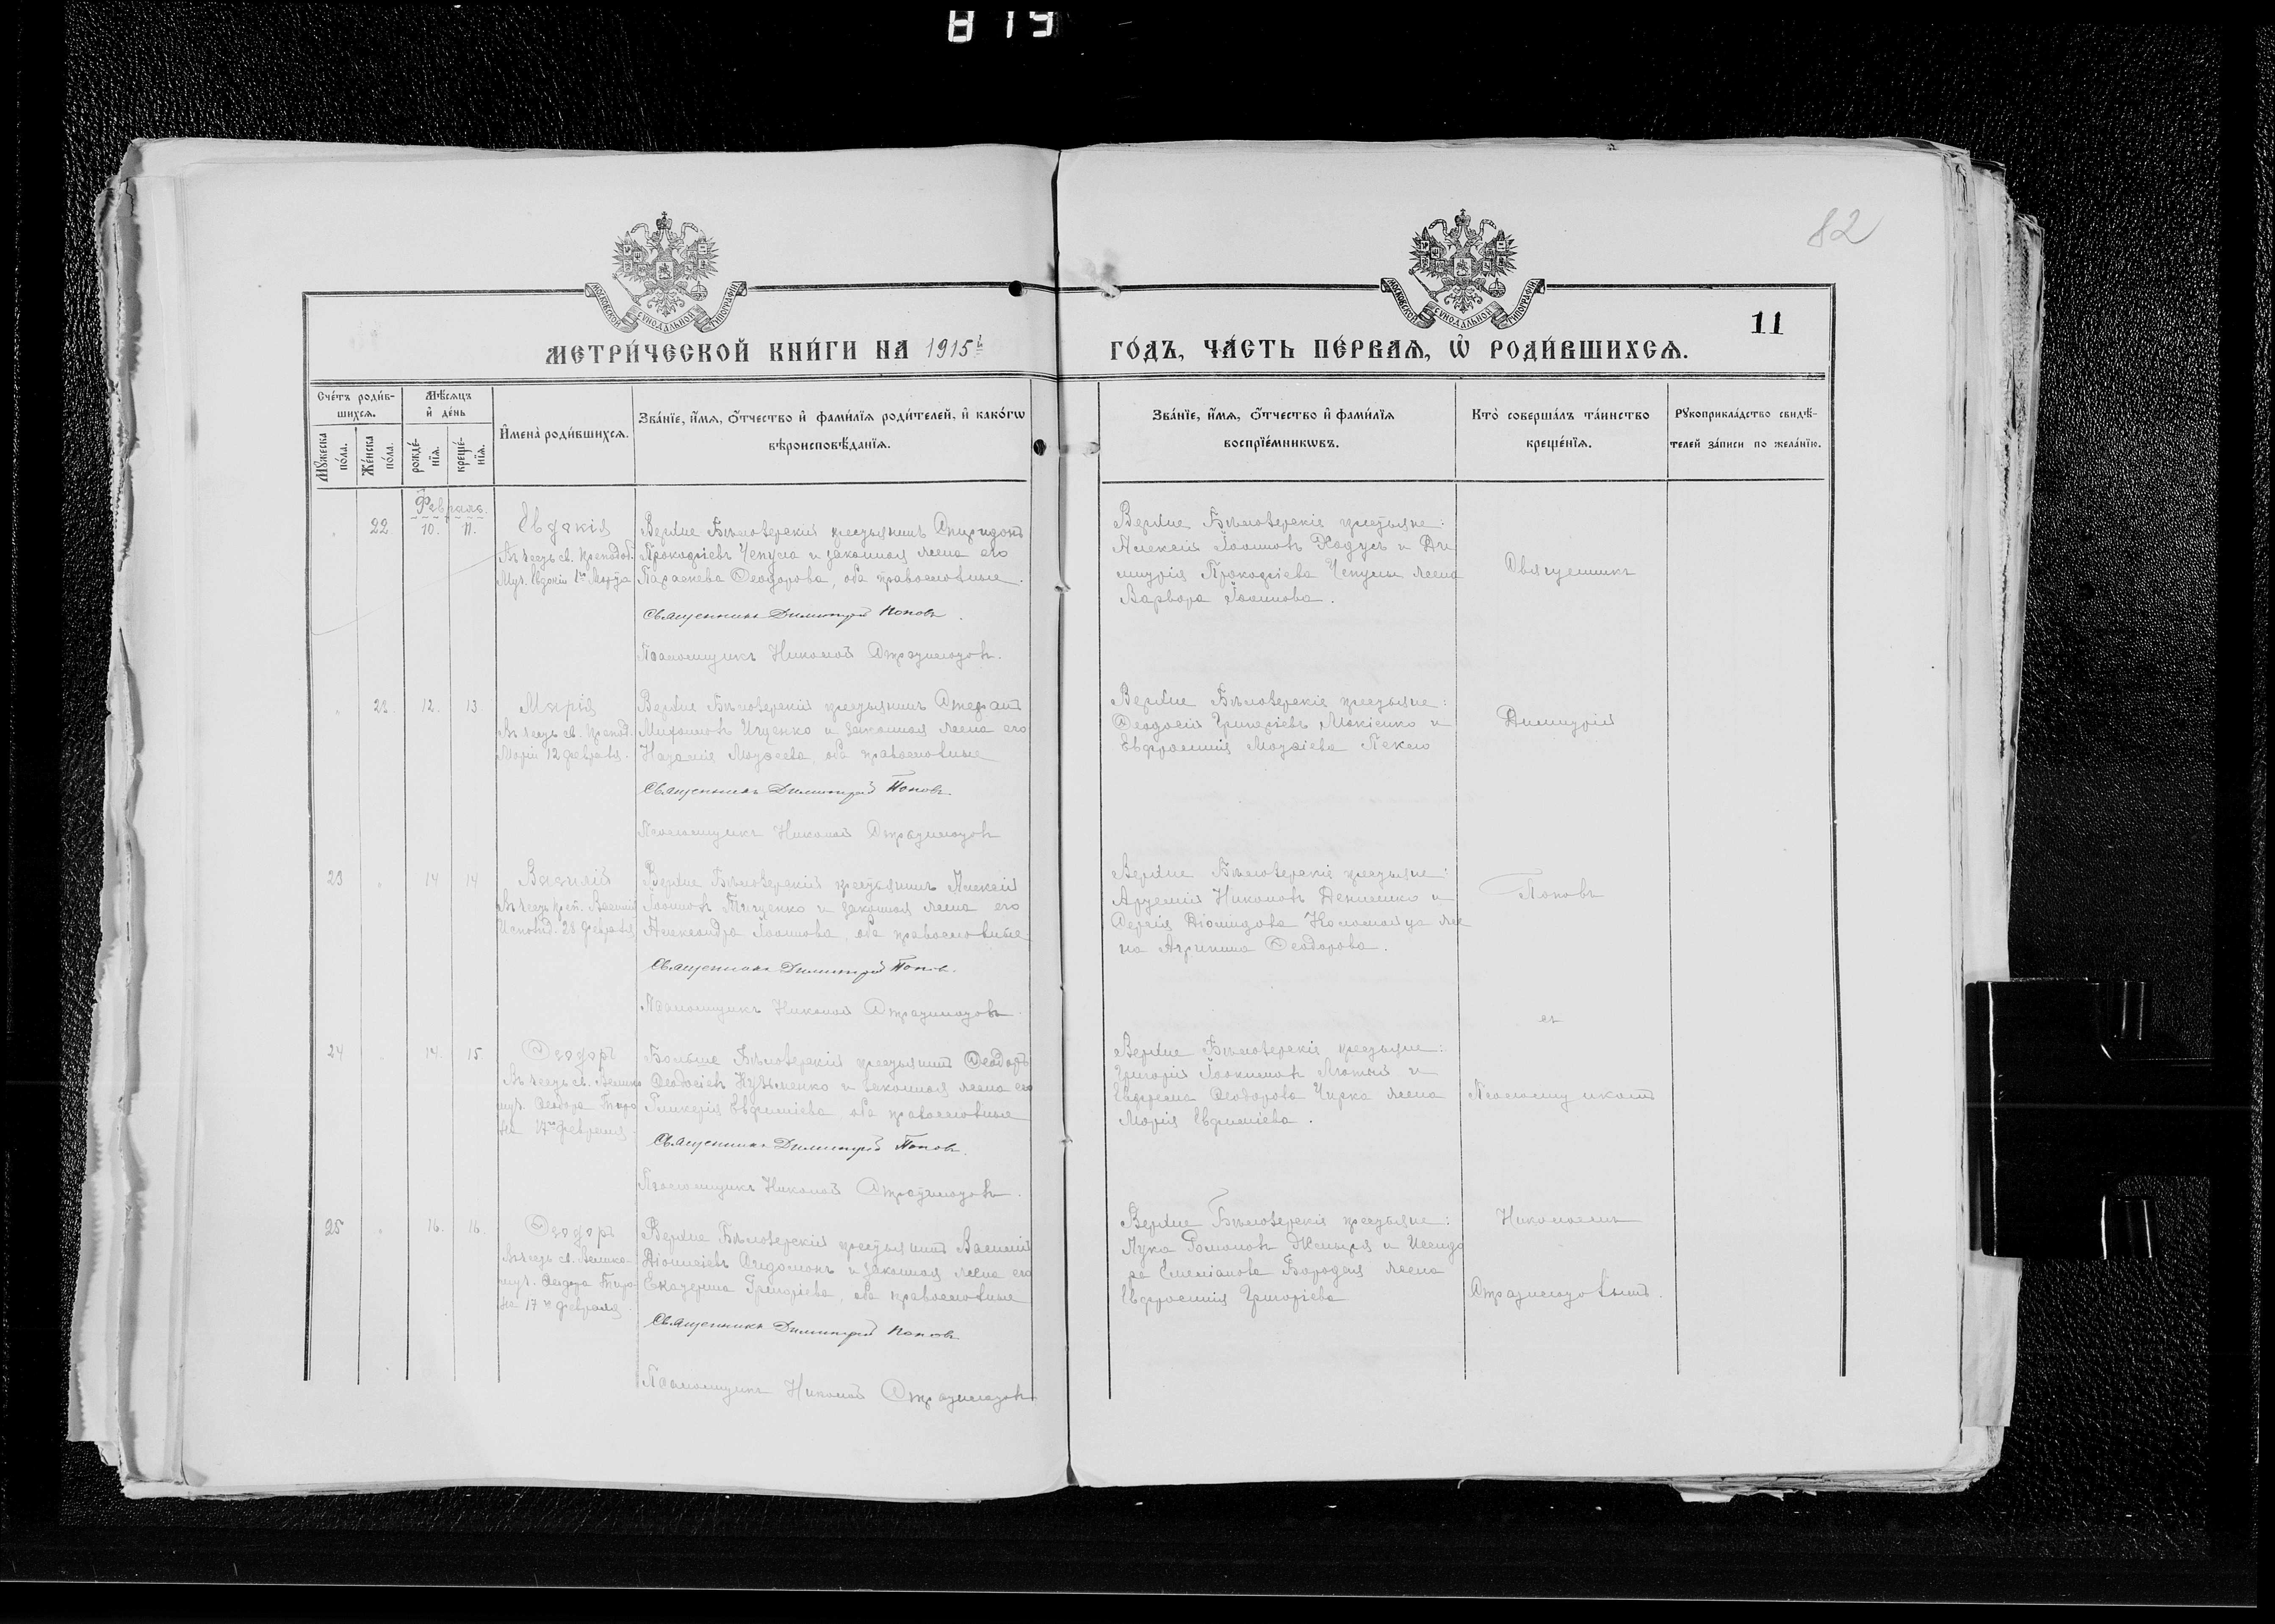 819
82
11
МОСКОВСКОЙ СѴНОДАЛЬНОЙ ТИПОГРАФІИ
МОСКОВСКОЙ СѴНОДАЛЬНОЙ ТИПОГРАФІИ
МЕТРИ́ЧЕСКОЙ КНИ́ГИ НА 1915й
ГО́ДЪ, ЧА́СТЬ ПЕ́РВАѦ, Ѽ РОДИ́ВШИХСѦ.
Сче́тъ роди́в-
шихсѧ.
Мꙋ́жеска по́ла.
Же́нска по́ла.
Мѣ́сѧцъ
и҆ де́нь
рожде́-
нїѧ.
креще́-
нїѧ.
И҆мена̀ роди́вшихсѧ.
Зва́нїе, и҆́мѧ, ѻ҆́тчество и҆ фами́лїѧ роди́телей, и҆ како́гѡ
вѣроисповѣ́данїѧ.
Зва́нїе, и҆́мѧ, ѻ҆́тчество и҆ фами́лїѧ
воспрїе́мникѡвъ.
Кто̀ соверша́лъ та́инство
креще́нїѧ.
Рꙋкоприкла́дство свидѣ́-
телей за́писи по жела́нїю.
Февраль.
22 10. 11.
Евдокія
Въ честь св. преподоб.
Муч. Евдокіи 1го Марта
Верхне Бѣлозерскій крестьянинъ Спиридонъ
Прокофіевъ Чепула и законная жена его
Параскева Ѳеодорова, оба православные.
Священникъ Димитрій Поповъ.
Псаломщикъ Николай
Верхне Бѣлозерскіе крестьяне:
Алексѣй Іоанновъ и Ди
митрія Прокофіева Чепулы жена
Варвара Іоаннова.
Священникъ
22 12. 13.
Марія
Въ честь св. препод.
Маріи 12 февраля.
Верхне Бѣлозерскій крестьянинъ Стефанъ
Ищенко и законная жена его
Наталія Моѵсеева, оба православные
Священникъ Димитрій Поповъ.
Псаломщикъ Николай
Верхне Бѣлозерскіе крестьяне:
Ѳеодосій Григоріевъ и
Евфросинія
Димитрій
23 14 14
Василій
Въ честь преп. Василія
Исповѣд. 28 февраля
Верхне Бѣлозерскій крестьянинъ Алексѣй
Іоанновъ Тищенко и законная жена его
Александра Іоаннова, оба православные
Священникъ Димитрій Попов.
Псаломщикъ Николай
Верхне Бѣлозерскіе крестьяне:
Артемій Никоновъ и
Сергія Діомидова Коломойца же
на Агрипина Ѳеодорова.
Поповъ
съ
24 14. 15
Ѳеодоръ
Въ честь св. Велико
муч. Ѳеодора Тиро
на 17го февраля.
Больше Бѣлозерскій крестьянинъ Ѳеодоръ
Ѳеодосіевъ Кузьменко и законная жена его
Гликерія Евфиміева оба православные
Священникъ Димитрій Поповъ.
Псаломщикъ Николай
Верхне Бѣлозерскіе крестьяне:
Григорій Іоакимовъ Лютый и
Ѳеодорова Чирка жена
Марія Евфиміева.
Псаломщикомъ
25 16. 16.
Ѳеодоръ
Въ честь св. Велико
муч. Ѳеодора Тиро
на 17го февраля.
Верхне Бѣлозерскій крестьянинъ Василій
Діонисіевъ и законная жена его
Екатерина Григоріева, оба православные
Священникъ Димитрій Поповъ.
Псаломщикъ Николай
Верхне Бѣлозерскіе крестьяне:
Лука Романовъ и Исидо
ра Емеліанова жена
Евфросинія Григоріева
Николаемъ